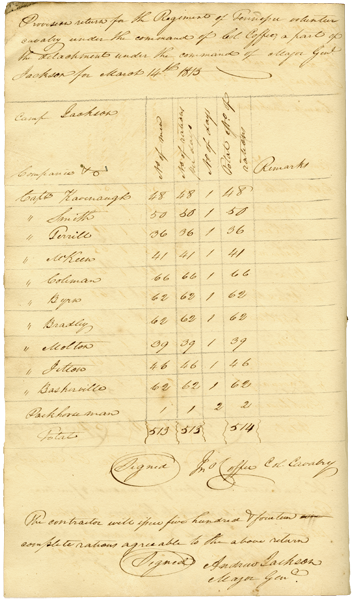 Provision return for the Regiment of Tennessee volunteer
cavalry under the command of Col Coffee, a part of
the detachment under the command of Major Genl
Jackson for March 14th 1813
Camp Jackson
Companies &c
No of men
No of rations per day
No of days
Total No of rations
Remarks
Capt Kavenaugh 48 48 1 48
" Smith 50 50 1 50
" Terrill 36 36 1 36
" McKeen 41 41 1 41
" Coleman 66 66 1 66
" Byrn 62 62 1 62
" Bradley 62 62 1 62
" Molton 39 39 1 39
" 46 46 1 46
" Baskerville 62 62 1 62
Packhorseman 1 1 2 2
Total 513 513 514
(Signed) Jno Coffee Col Cavalry
The contractor will issue five hundred & fourteen
complete rations agreeable to the above return
(Signed) Andrew Jackson
Major Genl